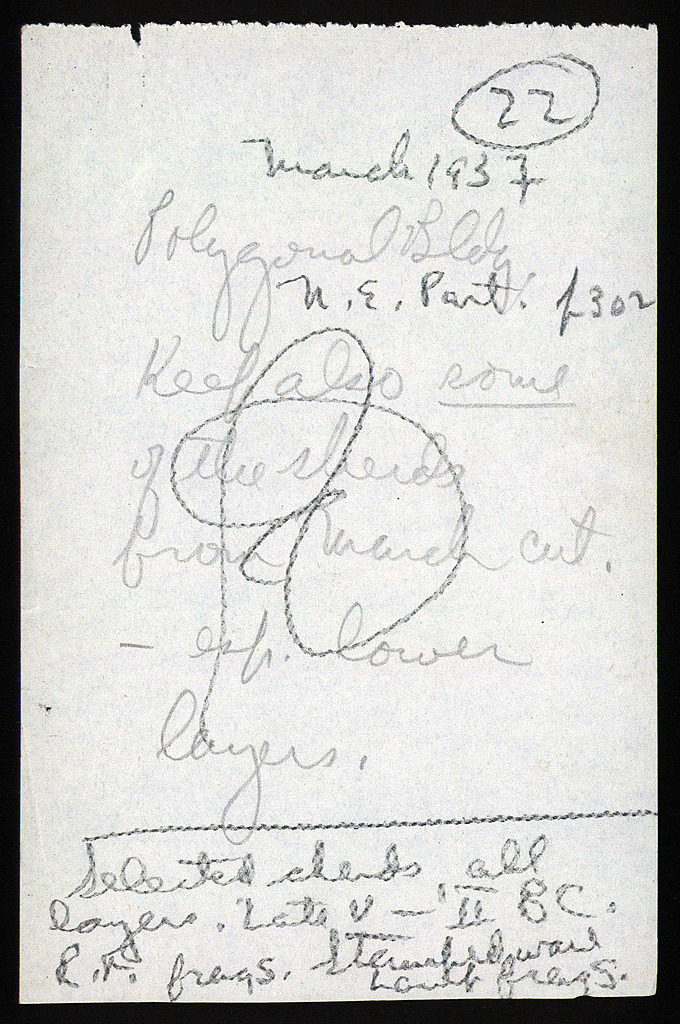 22
March 1937
Polygonal Bldg
N.E. Part. p302
Keep also some
of the sherds
from March cut.
- esp. lower
layers.
Selected sherds all
layers. Late V - II BC.
R.F. frags. Stamped ware
Lamp frags.